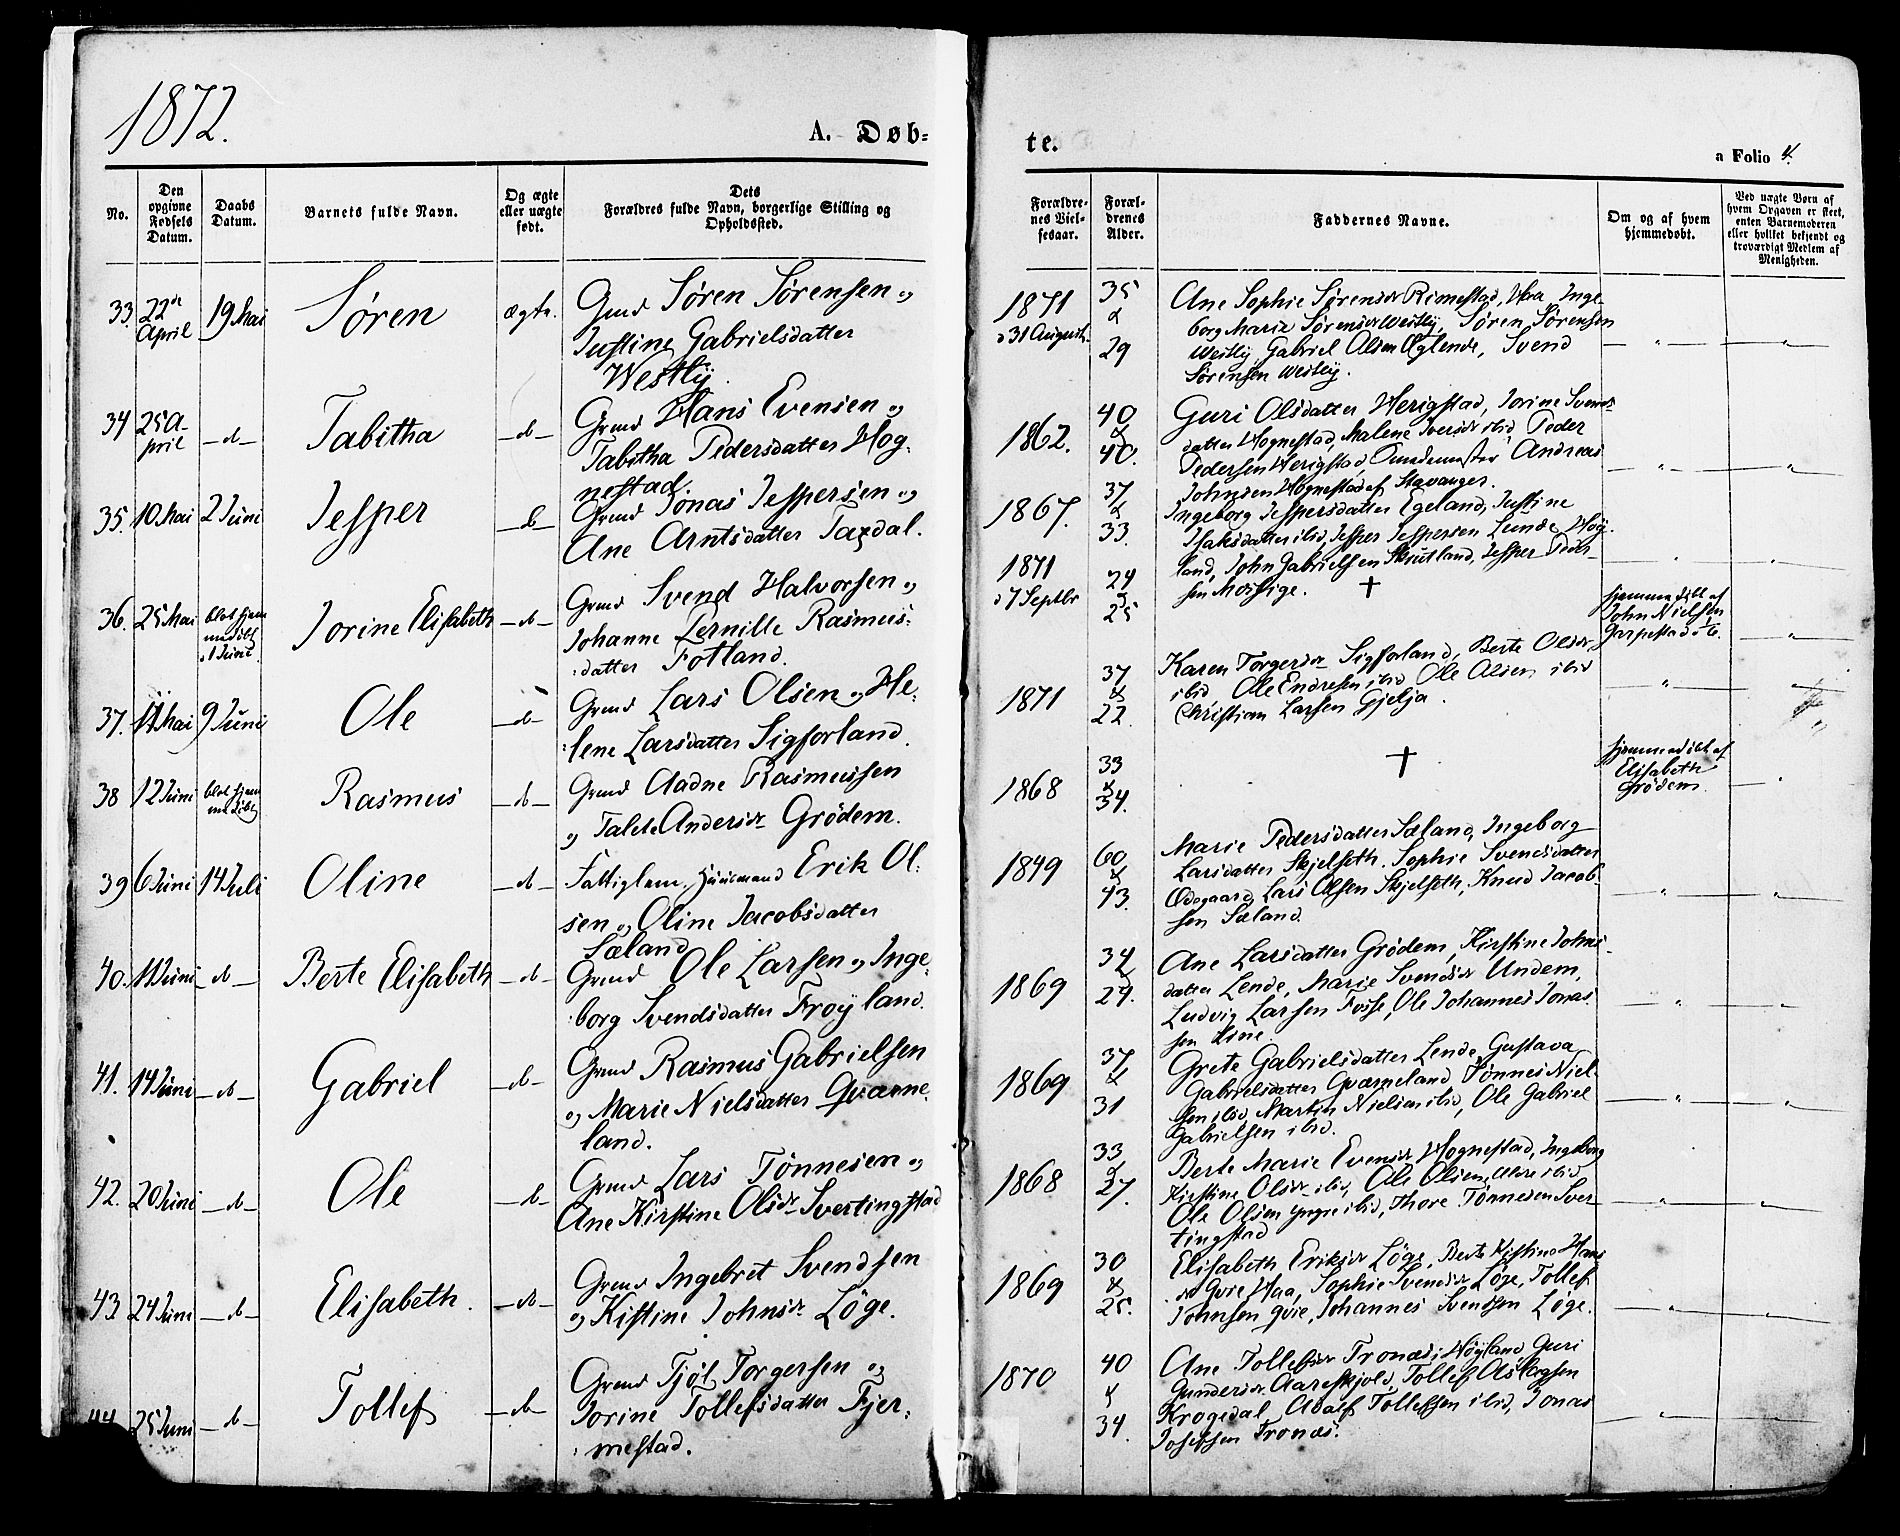 1872.
A. Døb-
te.
a Folio 4.
No.
Den
opgivne
Fødsels
Datum.
Daabs
Datum.
Barnets fulde Navn.
Og ægte
eller uægte
født.
Dets
Forældres fulde Navn, borgerlige Stilling og
Opholdssted.
Forældre-
nes Viel-
sesaar.
Foræl-
drenes
Alder.
Faddernes Navne.
Om og af hvem
hjemmedøbt.
Ved uægte Børn af
hvem Opgaven er skeet,
enten Barnemoderen
eller hvilket bekjendt og
troværdigt Medlem af
Menigheden.
33. 22de April 19 Mai Søren ægte.
Gmd Søren Sørensen og
Justine Gabrielsdatter
Westly.
1871
d 31 August.
35 & 29
Ane Sophie Sørensdr Rimestad, Inge-
borg Marie Sørensdr Westly, Søren Sørensen
Westly, Gabriel Olsen Øglende, Svend
Sørensen Westly.
34 25 A-
pril -d- Tabitha -d-
Grmd Hans Evensen og
Tabitha Pedersdatter Hog-
nestad.
1862. 40 & 40.
Guri Olsdatter Herigstad, Jorine Svends-
datter Hognestad, Malene Iversdr ibid, Peder
Pedersen Herigstad, Andreas
Johnsen Hognestad af Stavanger.
35. 10 Mai 2 Juni Jesper -d-
Grmd Jonas Jespersen og
Ane Arntsdatter Taxdal.
1867. 37 & 33.
Ingeborg Jespersdatter Egeland, Justine
Isaksdatter ibid, Jesper Jespersen Lunde Høy-
land, John Gabrielsen Skrutland, Jesper Peder-
sen Mossige.
36. 25 Mai blot hjem
medøbt
d 1 Juni. Jorine Elisabeth -d-
Grmd Svend Halvorsen og
Johanne Pernille Rasmus-
datter Fotland.
1871
d 7 Septbr
24 & 25
†
hjemmedøbt af
John Nielsen
Garpestad d 1/6.
37. 11 Mai 9 Juni Ole -d-
Grmd Lars Olsen og He-
lene Larsdatter Sigforland.
1871 37 & 22.
Karen Torgersdr Sigforland, Berte Olsdr
ibid Ole Endresen ibid Ole Olsen ibid
Christian Larsen Gjelja.
38 12 Juni blot hjem
medøbt Rasmus -d-
Grmd Aadne Rasmussen
og Talette Andersdr Grødem.
1868 33 & 34.
†
hjemmedøbt af
Elisabeth
Grødem.
39 6 Juni 14 Juli Oline -d-
Fattiglem, Huusmand Erik Ol-
sen og Oline Jacobsdatter
Sæland
1849 60 & 43.
Marie Pedersdatter Sæland, Ingeborg
Larsdatter Skjelseth. Sophie Svendsdatter
Ødegaard, Lars Olsen Skjelseth, Knud Jacob-
sen Sæland.
40. 11 Juni -d- Berte Elisabeth -d-
Grmd Ole Larsen og Inge-
borg Svendsdatter Frøyland.
1869 34 & 29.
Ane Larsdatter Grødem, Kirstine Johns-
datter Lende, Marie Svendsdr Undem,
Ludvig Larsen Fosse, Ole Johannes Jonas-
sen Line.
41. 14 Juni -d- Gabriel -d-
Grmd Rasmus Gabrielsen
og Marie Nielsdatter Qværne-
land.
1869 37 & 31
Grete Gabrielsdatter Lende, Gustava
Gabrielsdatter Qværneland, Tønnes Niel-
sen ibid, Martin Nielsen ibid, Ole Gabriel
Gabrielsen ibid.
42. 20 Juni -d- Ole -d-
Grmd Lars Tønnesen og
Ane Kirstine Olsdr Svertingstad
1868 33 & 27.
Berte Marie Evensdr Hognestad, Ingeborg
Kirstine Olsdr ibid, Ole Olsen ældre ibid,
Ole Olsen yngre ibid, Thore Tønnesen Sver-
tingstad
43 24 Juni -d- Elisabeth. -d-
Grmd Ingebret Svendsen
og Kistine Johnsdr Løge.
1869 30 & 25.
Elisabeth Eriksdr Løge, Berte Kistine Hans-
dr Qvie Haa, Sophie Svendsdr Løge, Tollef
Johnsen Qvie, Johannes Svendsen Løge.
44 25 Juni -d- Tollef -d-
Grmd Tjøl Torgersen og
Jorine Tollefsdatter Fjer-
mestad.
1870 40 & 34.
Ane Tollefsdr Tronæs i Høyland Guri
Gundersdr Aareskjold, Tollef Aslaksen
Krogedal, Adolf Tollefsen ibid, Jonas
Josefsen Tronæs.